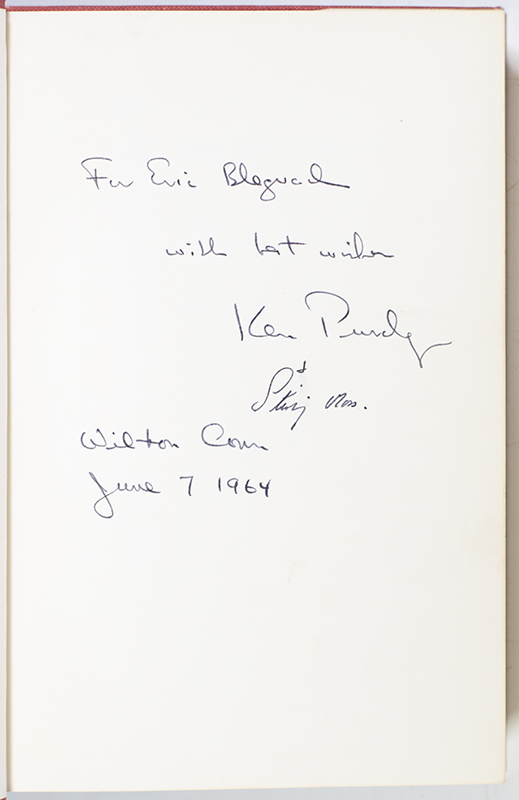 For Eric Blegvad
with best wishes
Ken Purdy
&
Stirling Moss.
Wilton Conn
June 7 1964